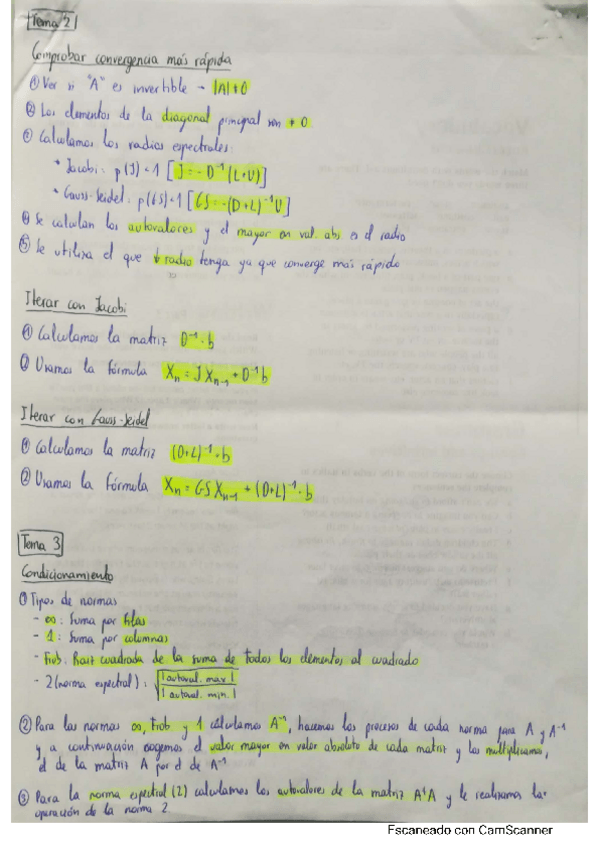 Tema 2
Comprobar convergencia más rápida
① Ver si "A" es invertible → |A| ≠ 0
② Los elementos de la diagonal principal son ≠ 0
③ Calculamos los radios espectrales:
* Jacobi: ρ(J) < 1 [J = -D⁻¹(L+U)]
* Gauss-Seidel: ρ(GS) < 1 [GS = -(D+L)⁻¹U]
④ Se calculan los autovalores y el mayor en val. abs. es el radio
⑤ Se utiliza el que ↓ radio tenga ya que converge más rápido
Iterar con Jacobi
① Calculamos la matriz D⁻¹·b
② Usamos la fórmula Xn = J Xn-1 + D⁻¹b
Iterar con Gauss-Seidel
① Calculamos la matriz (D+L)⁻¹·b
② Usamos la Fórmula Xn = GS Xn-1 + (D+L)⁻¹·b
Tema 3
Condicionamiento
① Tipos de normas
- ∞: Suma por filas
- 1: Suma por columnas
- Frob: Raíz cuadrada de la suma de todos los elementos al cuadrado
- 2 (norma espectral): √(|autoval. max| / |autoval. min.|)
② Para las normas ∞, Frob y 1 calculamos A⁻¹, hacemos los procesos de cada norma para A y A⁻¹
y a continuación cogemos el valor mayor en valor absoluto de cada matriz y los multiplicamos,
el de la matriz A por el de A⁻¹
③ Para la norma espectral (2) calculamos los autovalores de la matriz AᵗA y le realizamos la
operación de la norma 2.
Escaneado con CamScanner